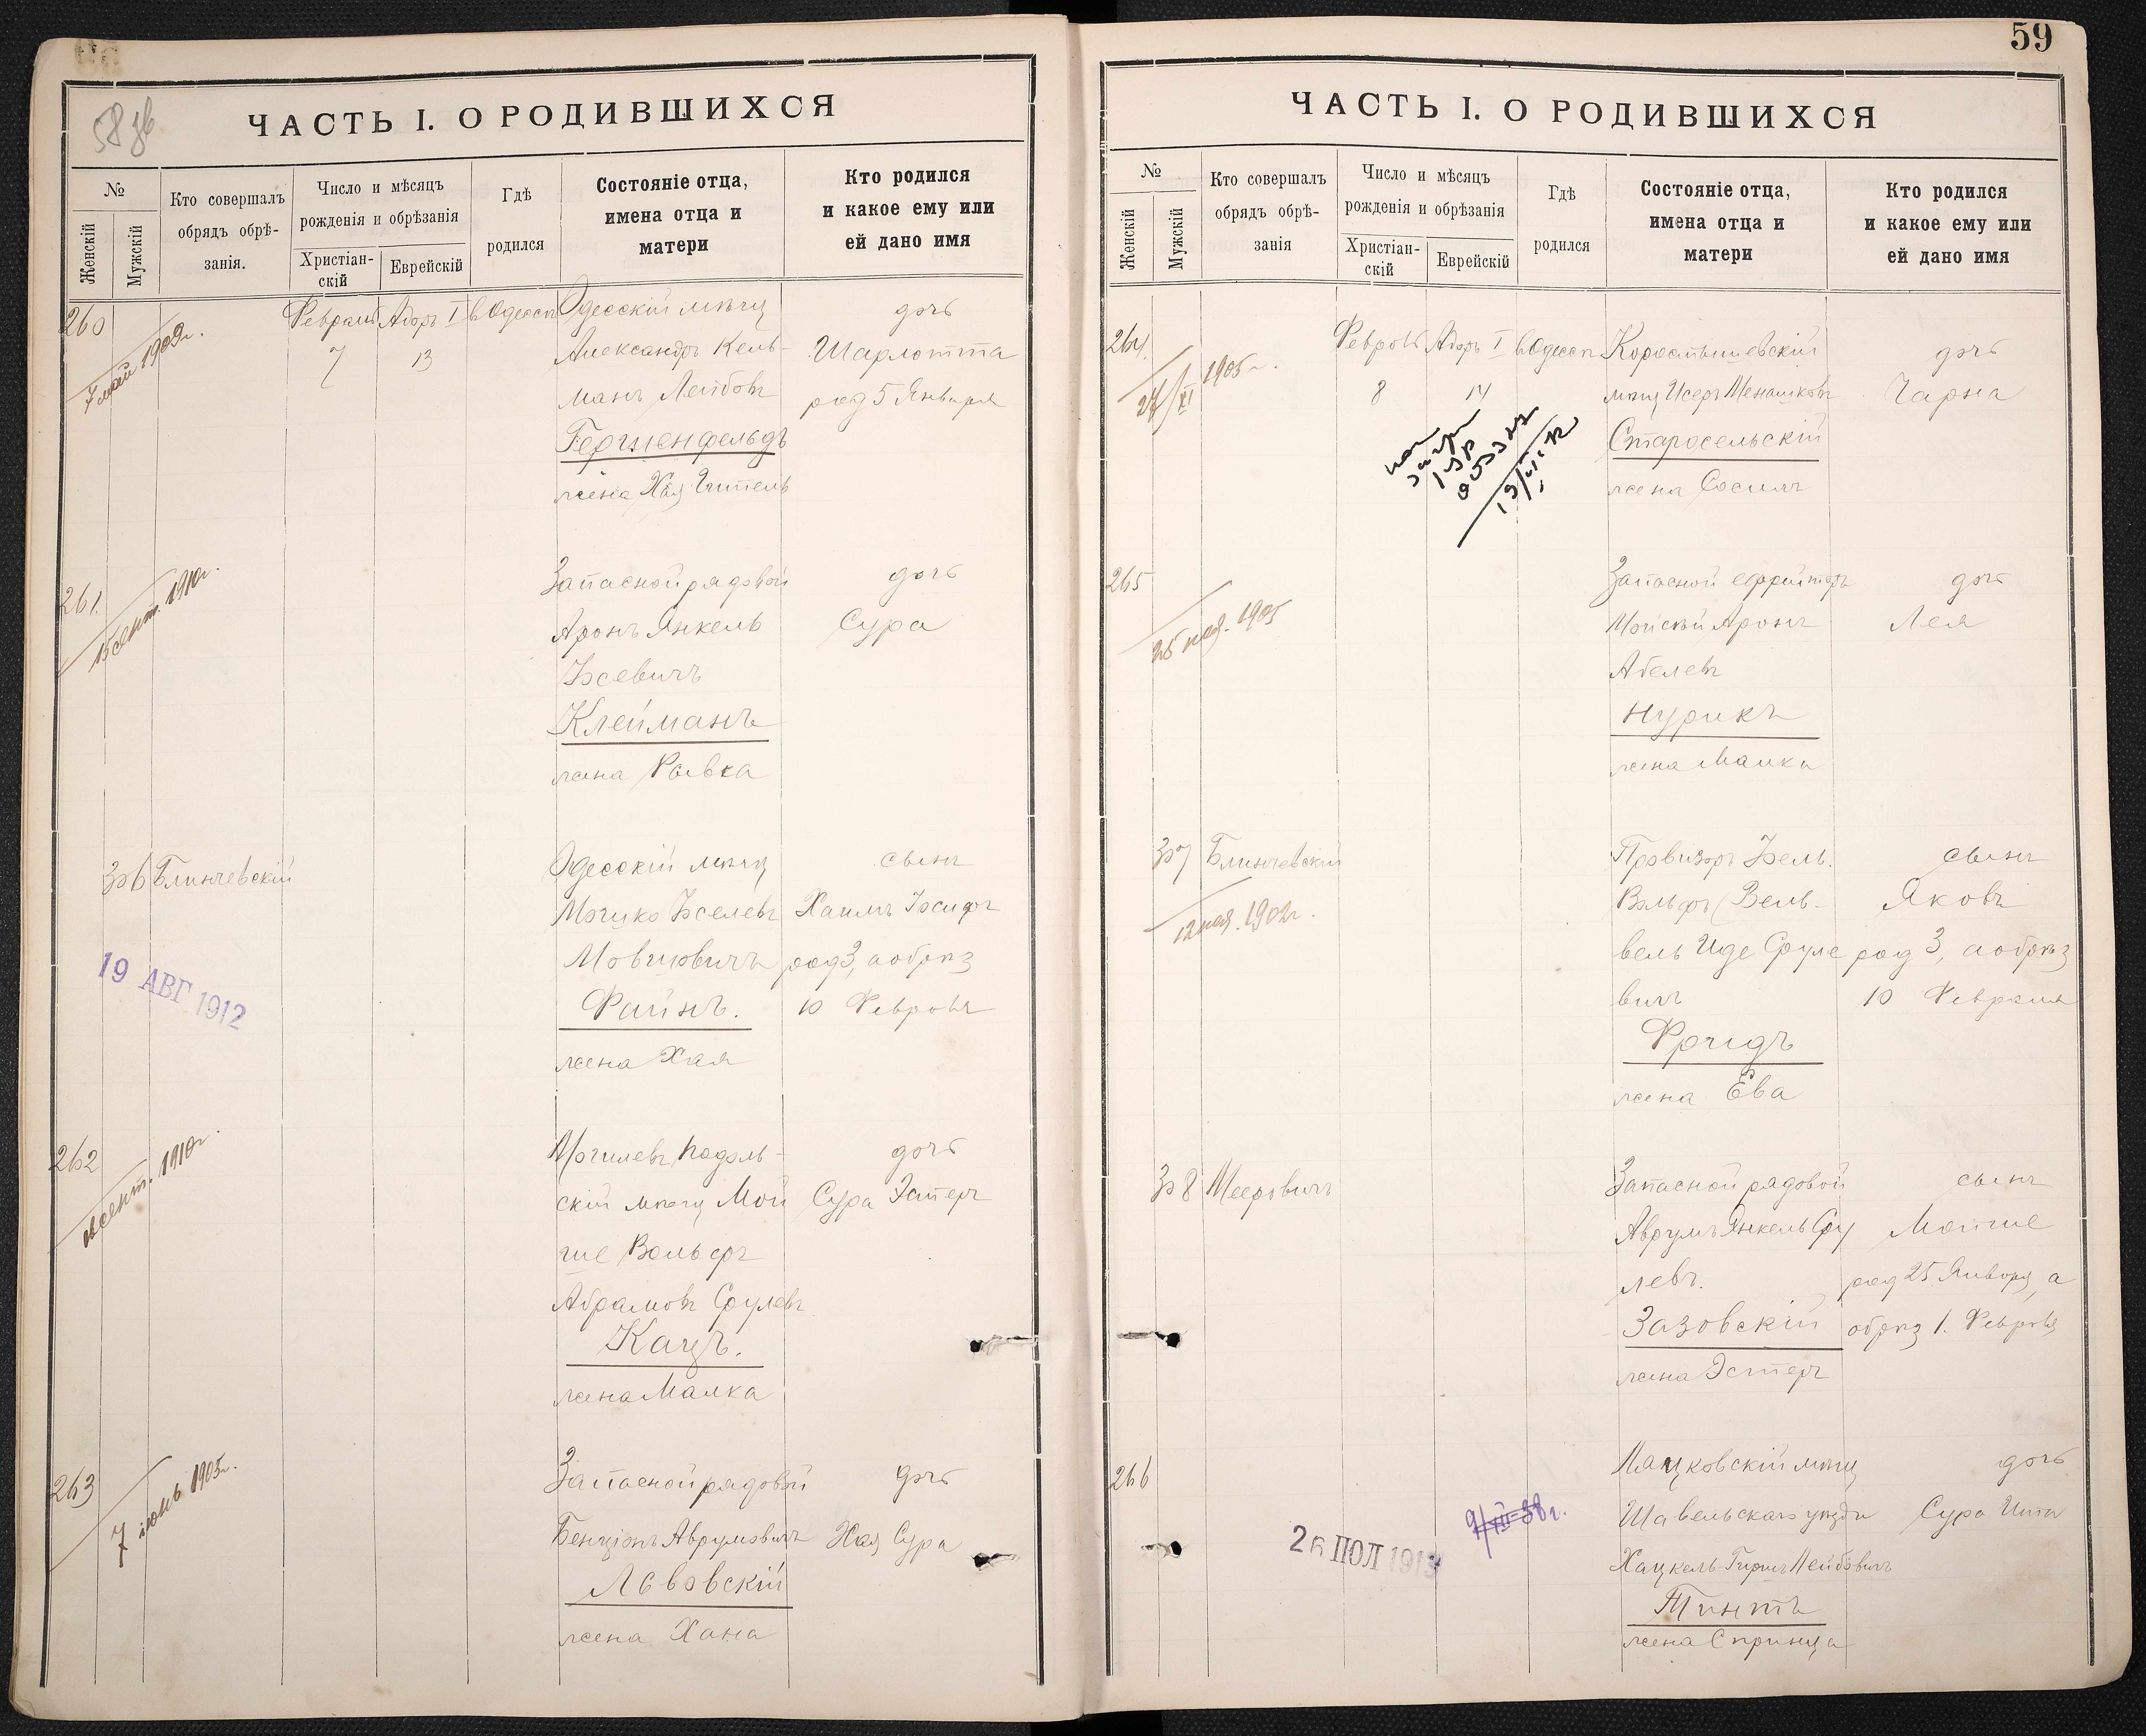 58 зв
ЧАСТЬ I. О РОДИВШИХСЯ
№
Женскій
Мужскій
Кто совершалъ
обрядъ обрѣ-
занія.
Число и мѣсяцъ
рожденія и обрѣзанія
Христіан-
скій
Еврейскій
Гдѣ
родился
Состояніе отца,
имена отца и
матери
Кто родился
и какое ему или
ей дано имя
260
7 май 1909г.
Февраля
7
Адоръ I
13
в Одессѣ
Одесскій мѣщ
Александръ Кель-
манъ Лейбовъ
Гершенфельдъ
жена Хая Гитель
дочь
Шарлотта
род 5 Января
261.
15 сент. 1910г.
Запасной рядовой
Аронъ Янкель
Іосевичъ
Клейманъ
жена Ривка
дочь
Сура
306
Блинчевскій
19 АВГ 1912
Одесскій мѣщ
Мошко Іоселевъ
Мовшовичъ
Файнъ.
жена Хая
сынъ
Хаимъ Іосифъ
род 3, а обрѣз
10 Февраля
262
сент. 1910г.
Могилевъ Подоль-
скій мѣщ Мой
ше Вольфъ
Абрамовъ Срулевъ
Кацъ.
жена Малка
дочь
Сура Эстеръ
263
7 іюнь 1905г.
Запасной рядовой
Бенціонъ Аврумовичъ
Львовскій
жена Хана
дочь
Хая Сура
59
ЧАСТЬ I. О РОДИВШИХСЯ
№
Женскій
Мужскій
Кто совершалъ
обрядъ обрѣ-
занія
Число и мѣсяцъ
рожденія и обрѣзанія
Христіан-
скій
Еврейскій
Гдѣ
родился
Состояніе отца,
имена отца и
матери
Кто родился
и какое ему или
ей дано имя
264.
24/XI 1905г.
Февраля
8
Адоръ I
14
в Одессѣ
Коростышевскій
мѣщ Исеръ Менашковъ
Старосельскій
жена Сосилъ
дочь
Чарна
265
25 ноя. 1905
Запасной ефрейторъ
Мойсей Аронъ
Абелевъ
Нурикъ
жена Малка
дочь
Лея
307
Блинчевскій
12 ноя. 1902г.
Провизоръ Іоель.
Вольфъ (Вель-
вель Иде Сруле
вичъ
Фридъ
жена Ева
сынъ
Яковъ
род 3, а обрѣз
10 Февраля
308
Мееровичъ
Запасной рядовой
Аврумъ Янкель Сру
левъ.
Зазовскій
жена Эстеръ
сынъ
Мойше
род 25 Января, а
обрѣз 1. Февраля
266
26 ІЮЛ 1913
9/III-38г.
мѣщ
Шавельскаго уѣзда
Хацкель-Гиршъ Лейбовичъ
Тинтъ
жена Спринца
дочь
Сура Ита